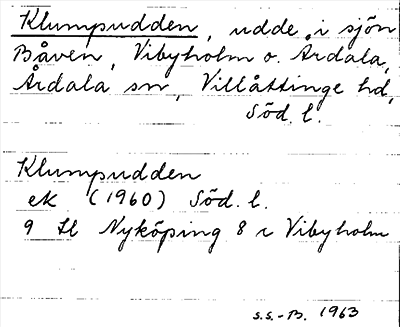 Klumpudden, udde i sjön
Båven, Vibyholm o. Årdala,
Årdala sn, Villåttinge hd,
Söd. l.
Klumpudden
ek (1960) Söd. l.
9 Nyköping 8 c Vibyholm
S.S.-B. 1963